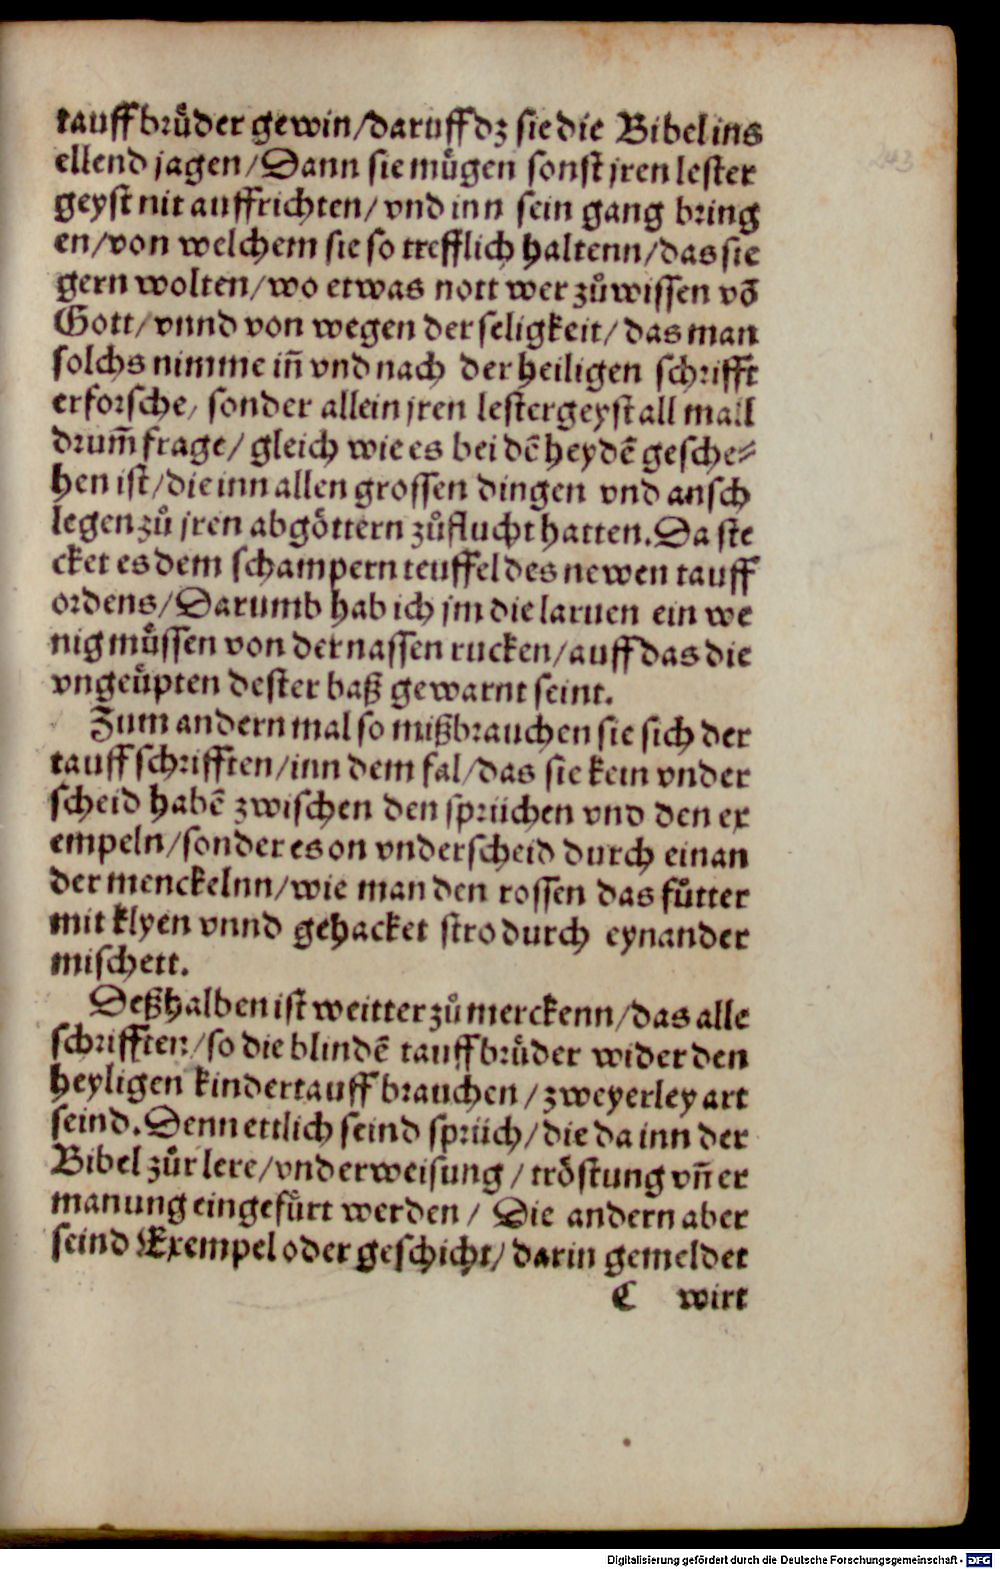 tauffbrůder gewin/daruff dz sie die Bibel ins
ellend jagen/Dann sie můgen sonst jren lester
geyst nit auffrichten/vnd inn sein gang bring
en/von welchem sie so trefflich haltenn/das sie
gern wolten/wo etwas nott wer zůwissen võ
Gott/vnnd von wegen der seligkeit/das man
solchs nimme iñ vnd nach der heiligen schrifft
erforsche/sonder allein jren lestergeyst all mall
drum̃ frage/gleich wie es bei dẽ heydẽ gesche⸗
hen ist/die inn allen grossen dingen vnd ansch
legen zů jren abgöttern zůflucht hatten.Da ste
cket es dem schampern teuffel des newen tauff
ordens/Darumb hab ich jm die laruen ein we
nig můssen von der nassen rucken/auff das die
vngeůpten dester baß gewarnt seint.
Zum andern mal so mißbrauchen sie sich der
tauff schrifften/inn dem fal/das sie kein vnder
scheid habẽ zwischen den sprüchen vnd den ex
empeln/sonder es on vnderscheid durch einan
der menckelnn/wie man den rossen das fůtter
mit klyen vnnd gehacket stro durch eynander
mischett.
Deßhalben ist weitter zů merckenn/das alle
schrifften/so die blindẽ tauffbrůder wider den
heyligen kindertauff brauchen/zweyerley art
seind.Denn ettlich seind sprüch/die da inn der
Bibel zůr lere/vnderweisung/tröstung vñ er
manung eingefůrt werden/Die andern aber
seind Exempel oder geschicht/darin gemeldet
C wirt
243
Digitalisierung gefördert durch die Deutsche Forschungsgemeinschaft - DFG